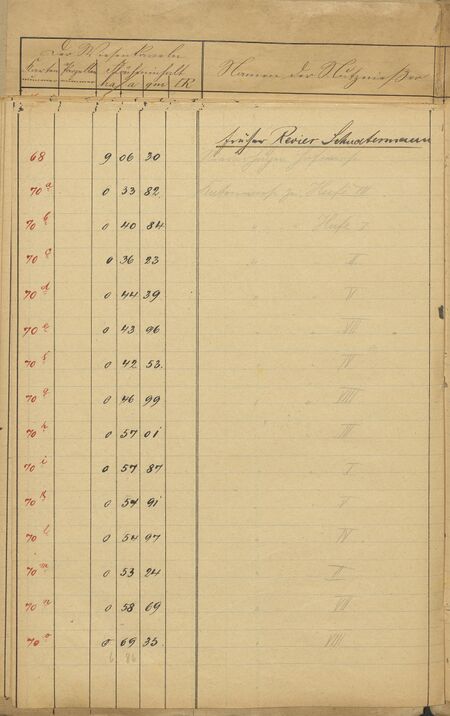 Der Wiesen Parzelle
Karten Parzellen Flächeninhalt
nummer nummer ha a qm ER
Namen der Nutznießer
früher Revier Schudtermann
68 9 06 30
70a 0 33 82 Hufe IV
70b 0 40 84 " " Hufe I
70c 0 36 23 " II
70d 0 44 39 " V
70e 0 43 96 " VII
70f 0 42 53 " IV
70g 0 46 99 " VIII
70h 0 57 01 " III
70i 0 57 87 " I
70k 0 54 91 " V
70l 0 54 97 " IV
70m 0 53 24 " II
70n 0 58 69 " VII
70o 0 69 35 " VIII